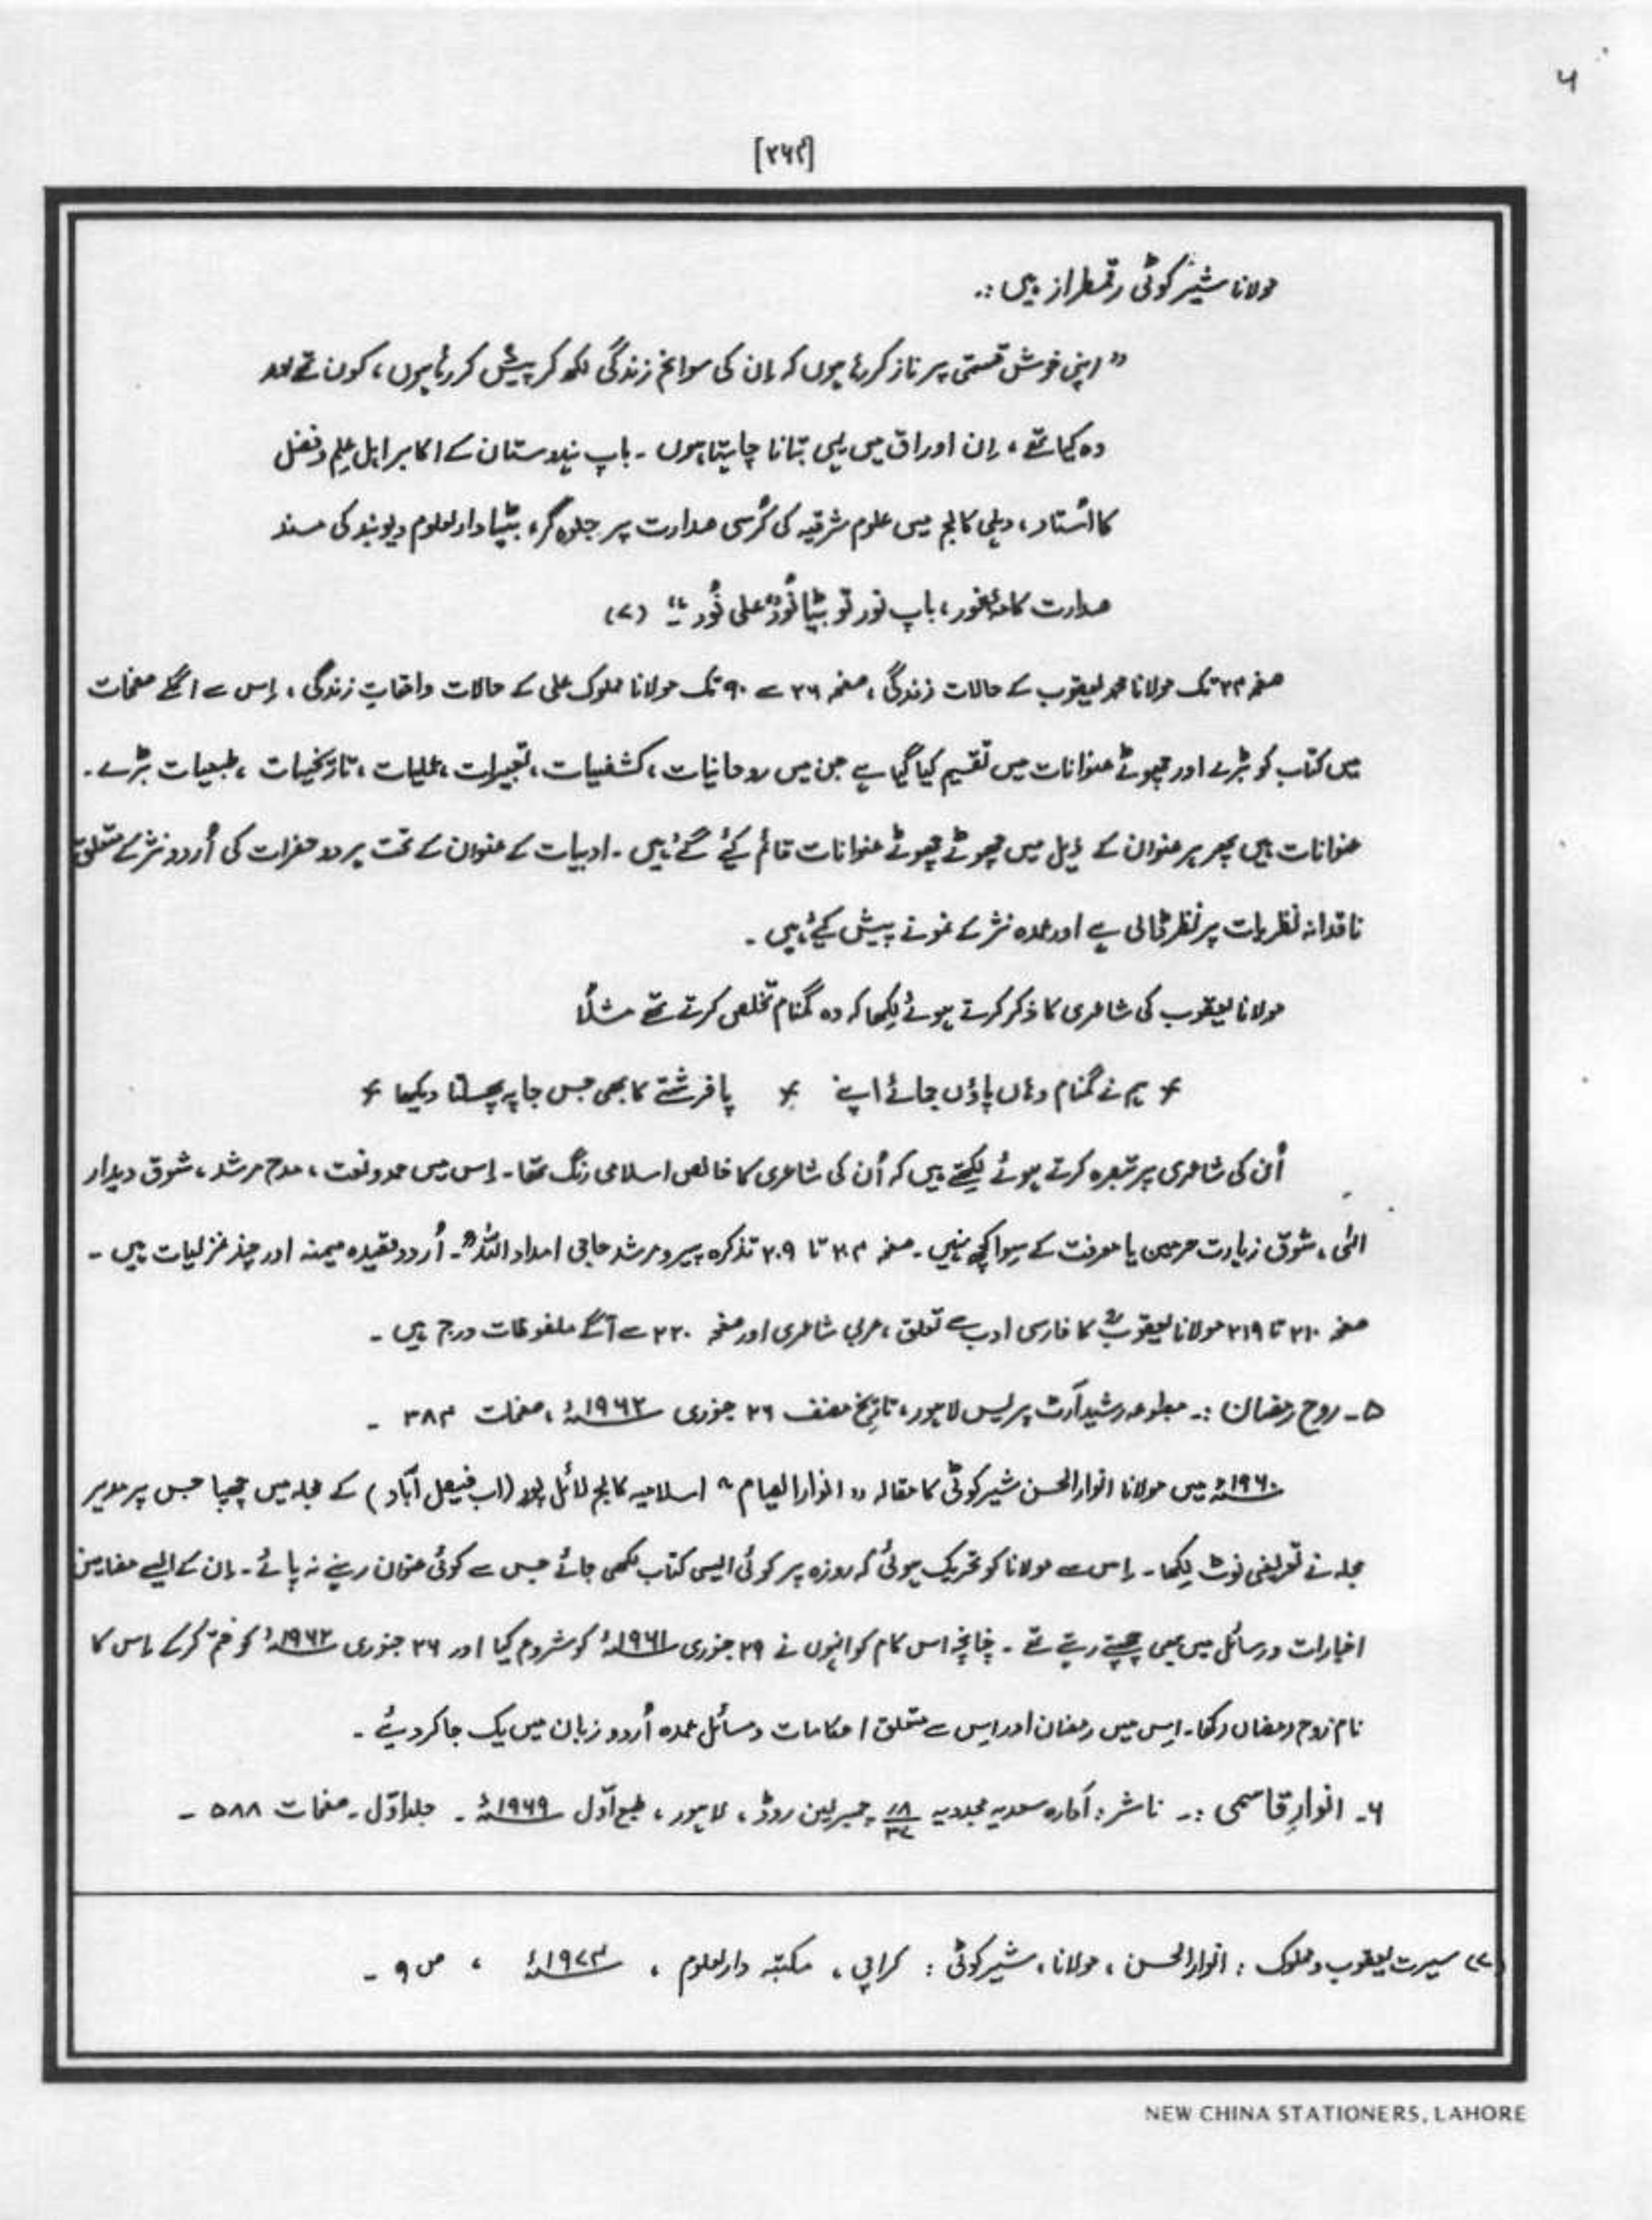 ۶
[۲۶۴]
مولانا شیرکوٹی رقمطراز ہیں :۔
" اپنی خوش قسمتی پر ناز کررہا ہوں کہ اِن کی سوانح زندگی لکھ کر پیش کررہا ہوں، کون تھے اور
وہ کیا تھے، اِن اوراق میں یہی بتانا چاہتا ہوں ۔ باپ ہندوستان کے اکابر اہل علِم و فضل
کا اُستاد، دہلی کالج میں علوم شرقیہ کی کُرسی صدارت پر جلوہ گر، بیٹا دارلعلوم دیوبند کی مسند
صدارت کا صدر، باپ نور تو بیٹا نُورٌ علی نُور "۔ (۷)
صفحہ ۳۴ تک مولانا محمد یعقوب کے حالات زندگی، صفحہ ۳۶ سے ۹۰ تک مولانا مملوک علی کے حالات واقعاتِ زندگی، اِس سے اگلے صفحات
میں کتاب کو بڑے اور چھوٹے عنوانات میں تقسیم کیا گیا ہے جن میں روحانیات، کشفیات، تعبیرات، عملیات، تاریخیات، طبعیات بڑے۔
عنوانات ہیں پھر ہر عنوان کے ذیل میں چھوٹے چھوٹے عنوانات قائم کیئے گئے ہیں ۔ ادبیات کے عنوان کے تحت ہر دو حضرات کی اُردو نثر کے متعلق
ناقدانہ نظریات پر نظر ڈالی ہے اور عمدہ نثر کے نمونے پیش کیئے ہیں ۔
مولانا یعقوب کی شاعری کا ذکر کرتے ہوئے لِکھا کہ وہ گمنام تخلص کرتے تھے مثلاً
؂ ہم نے گمنام وہاں پاؤں جمائے اپنے ؂ پا فرشتے کا بھی جس جا پہ پھسلتا دیکھا ؂
اُن کی شاعری پر تبصرہ کرتے ہوئے لِکھتے ہیں کہ اُن کی شاعری کا خالص اسلامی رنگ تھا ۔ اِس میں حمد و نعت، مدح مرشد، شوق دیدار
الٰہی، شوق زیارت حرمین یا معرفت کے سِوا کچھ نہیں ۔ صفحہ ۲۰۴ تا ۲۰۹ تذکرہ پیر و مرشد حاجی امداد اللہؒ ۔ اُردو قصیدہ میمنہ اور چند غزلیات ہیں ۔
صفحہ ۲۱۰ تا ۲۱۹ مولانا یعقوبؒ کا فارسی ادب سے تعلق، عربی شاعری اور صفحہ ۲۲۰ سے آگے ملفوظات درج ہیں ۔
۵ ۔ روح رمضان :۔ مطبوعہ رشید آرٹ پریس لاہور، تاریخ مصنف ۲۶ جنوری ۱۹۶۲ء، صفحات ۳۸۴ ۔
۱۹۶۰ء میں مولانا انوارالحسن شیرکوٹی کا مقالہ " انوار الصیام " اسلامیہ کالج لائل پور (اب فیصل آباد) کے مجلہ میں چھپا جس پر مدیر
مجلہ نے تعریفی نوٹ لِکھا ۔ اِس سے مولانا کو تحریک ہوئی کہ روزہ پر کوئی ایسی کتاب لکھی جائے جس سے کوئی عنوان رہنے نہ پائے ۔ اِن کے ایسے مضامین
اخبارات و رسائل میں بھی چھپتے رہتے تھے ۔ چنانچہ اس کام کو انہوں نے ۲۹ جنوری ۱۹۶۱ء کو شروع کیا اور ۲۶ جنوری ۱۹۶۲ء کو ختم کرکے اِس کا
نام روح رمضان رکھا ۔ اِس میں رمضان اور اِس سے متعلق احکامات و مسائل عمدہ اُردو زبان میں یک جا کر دیئے ۔
۶ ۔ انوارِ قاسمی :۔ ناشر : ادارہ سعدیہ مجددیہ ۱۸/۳۷ چیمبرلین روڈ، لاہور، طبع اوّل ۱۹۶۹ء ۔ جلد اوّل ۔ صفحات ۵۸۸ ۔
(۷) سیرت یعقوب و مملوک : انوارالحسن، مولانا، شیرکوٹی : کراچی، مکتبہ دارلعلوم، ۱۹۷۴ء، ص ۹ ۔
NEW CHINA STATIONERS, LAHORE